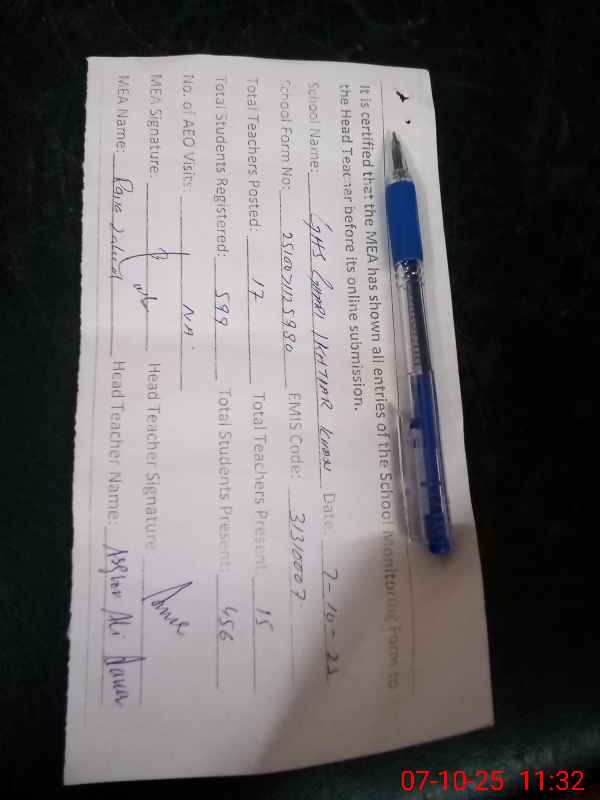 It is certified that the MEA has shown all entries of the School Monitoring Form to
the Head Teacher before its online submission.
School Name: GHS GHARI IKHTIAR KHAN Date: 7-10-25
School Form No: 2510071125980 EMIS Code: 31310007.
Total Teachers Posted: 17 Total Teachers Present: 15
Total Students Registered: 599 Total Students Present: 456
No. of AEO Visits: NA
MEA Signature: Head Teacher Signature
MEA Name: Head Teacher Name: Asghar Ali
07-10-25 11:32